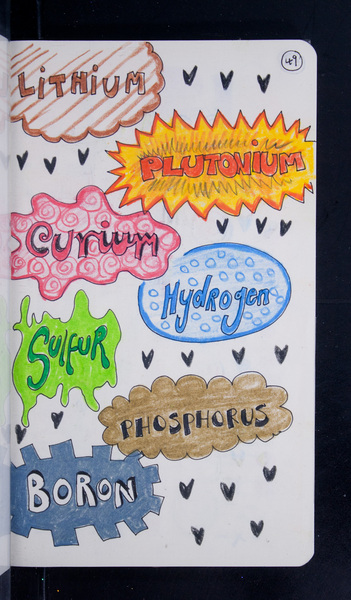 49
LiTHiUM
PLUTONIUM
Curium
Hydrogen
SULFUR
PHOSPHORUS
BORON